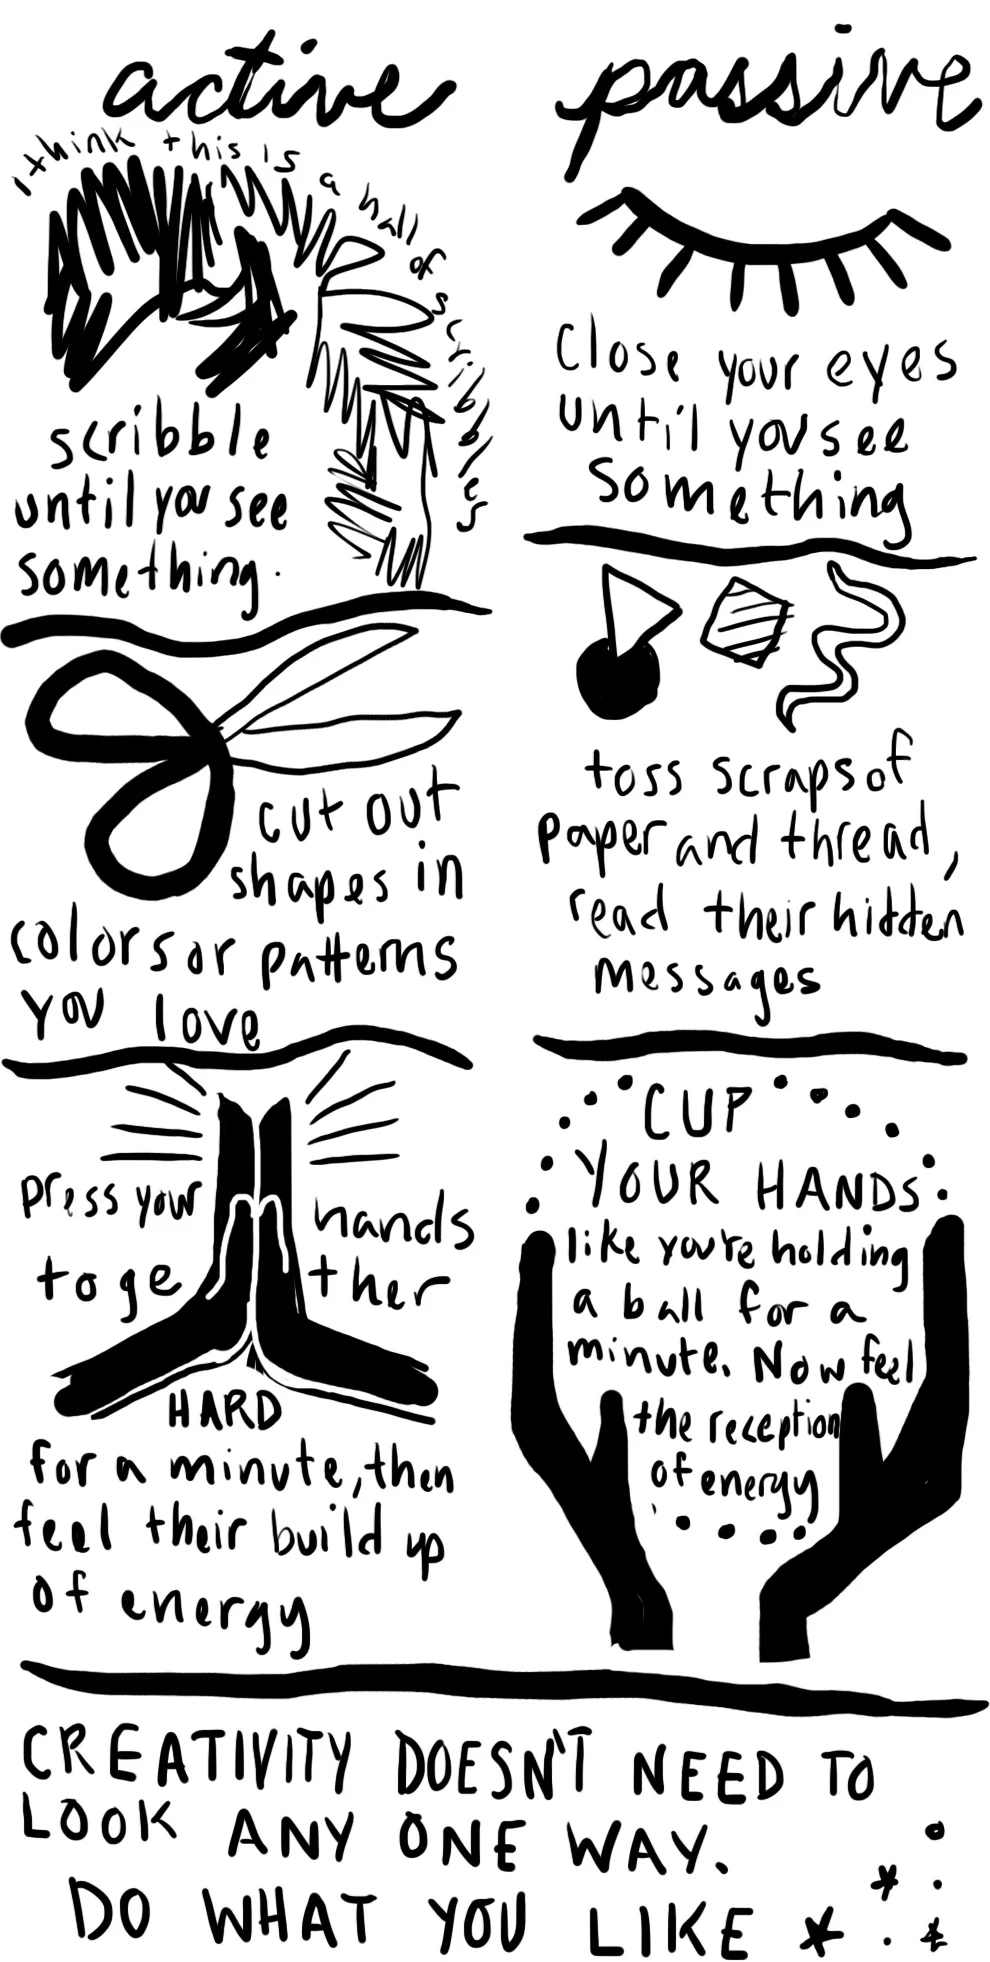 active
i think this is a hall of scribbles
scribble
until you see
something.
cut out
shapes in
colors or patterns
you love
press your hands
toge ther
HARD
for a minute, then
feel their build up
of energy
passive
close your eyes
until you see
something
toss scraps of
paper and thread,
read their hidden
messages
CUP
YOUR HANDS
like you're holding
a ball for a
minute. Now feel
the reception
of energy
CREATIVITY DOESN'T NEED TO
LOOK ANY ONE WAY.
DO WHAT YOU LIKE